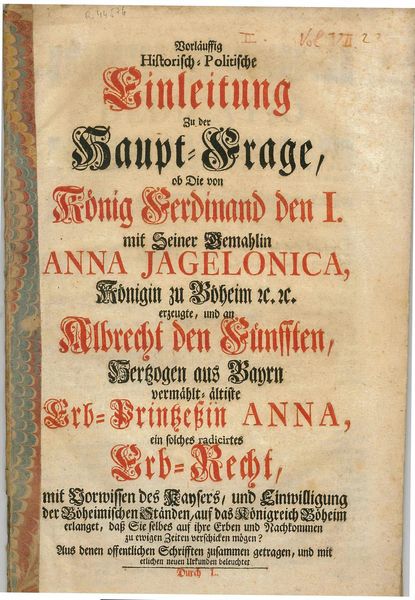 Vorläuffig
Historisch-Politische
Einleitung
Zu der
Haupt-Frage,
ob Die von
König Ferdinand den I.
mit Seiner Gemahlin
ANNA JAGELONICA,
Königin zu Böheim ꝛc. ꝛc.
erzeugte, und an
Albrecht den Fünfften,
Hertzogen aus Bayrn
vermählt-ältiste
Erb-Printzeßin ANNA,
ein solches radicirtes
Erb-Recht,
mit Vorwissen des Kaysers, und Einwilligung
der Böheimischen Ständen, auf das Königreich Böheim
erlanget, daß Sie selbes auf ihre Erben und Nachkommen
zu ewigen Zeiten verschicken mögen?
Aus denen offentlichen Schrifften zusammen getragen, und mit
etlichen neuen Urkunden beleuchtet
Durch L.